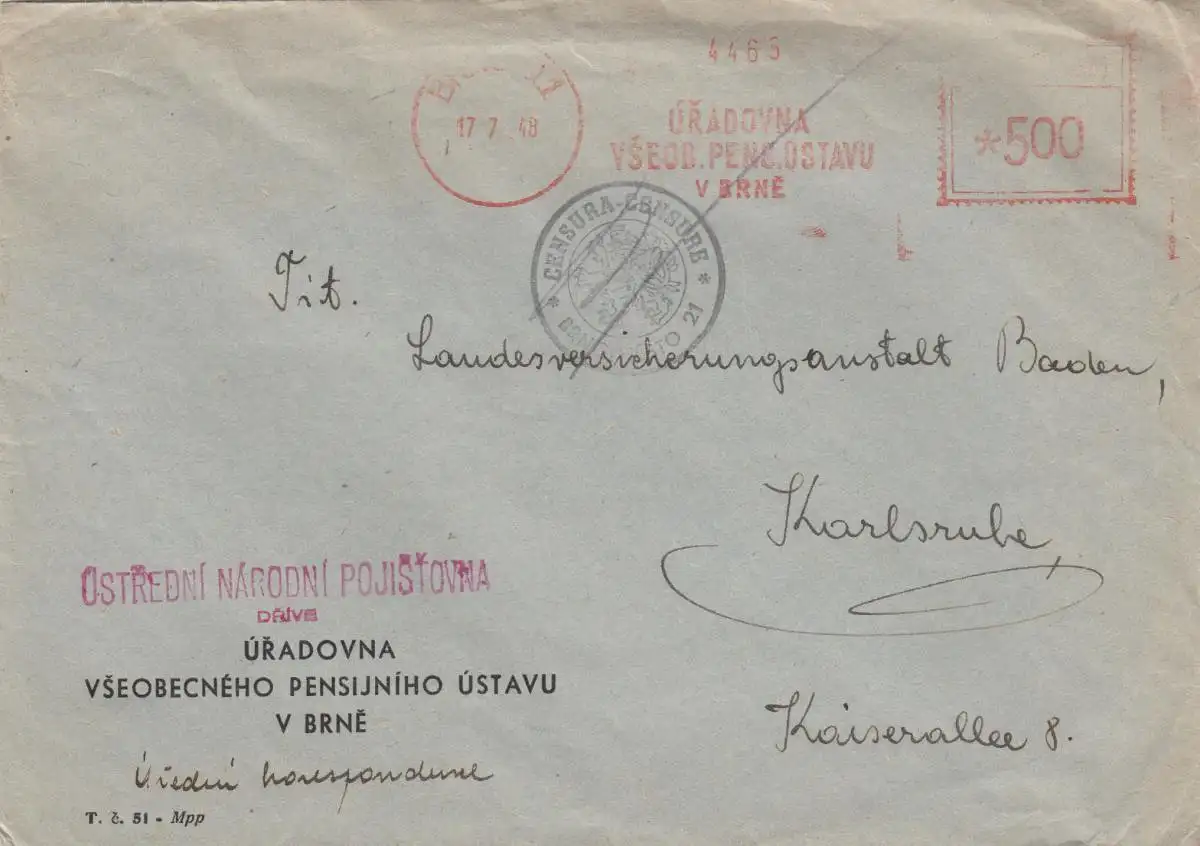 4463
17 7 48
ÚŘADOVNA
VŠEOB. PENS. ÚSTAVU
V BRNĚ
*500
* CENSURA-CENSURE *
21
Tit.
Landesversicherungsanstalt Baden,
Karlsruhe,
Kaiserallee 8.
ÚSTŘEDNÍ NÁRODNÍ POJIŠŤOVNA
DŘÍVE
ÚŘADOVNA
VŠEOBECNÉHO PENSIJNÍHO ÚSTAVU
V BRNĚ
Úřední korespondence
T. č. 51 - Mpp